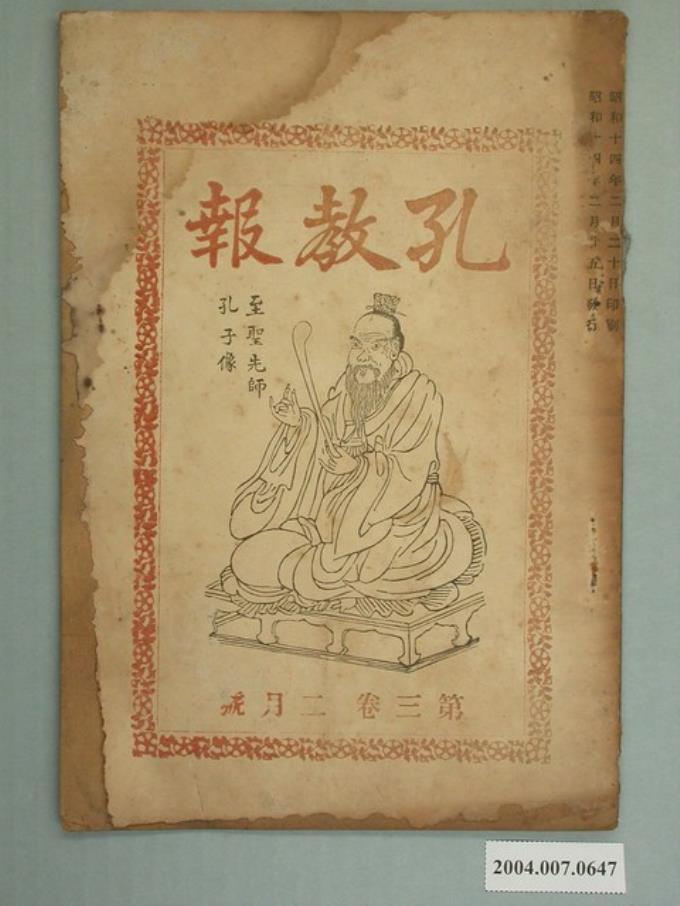 昭和十四年二月二十日印刷
昭和十四年二月十五日發行
孔教報
至聖先師
孔子像
第三卷 二月號
2004.007.0647